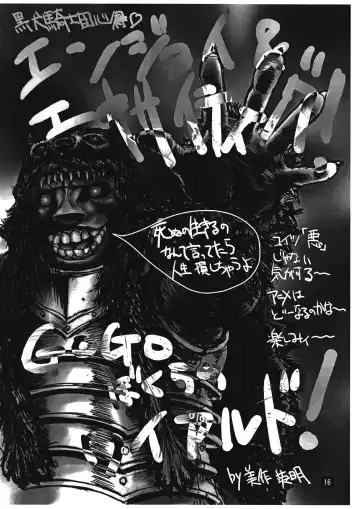 黒犬騎士団心得♡
エンジョイ&
エキサイティング!
死ぬの生きるの
なんて言ってたら
人生損しちゃうよ
コイツ「悪」
じゃない
気がする〜
アニメは
どーなるのかな〜
楽しみィ〜〜
GoGo
ぼくらの
ワイアルド!
by 美作
16